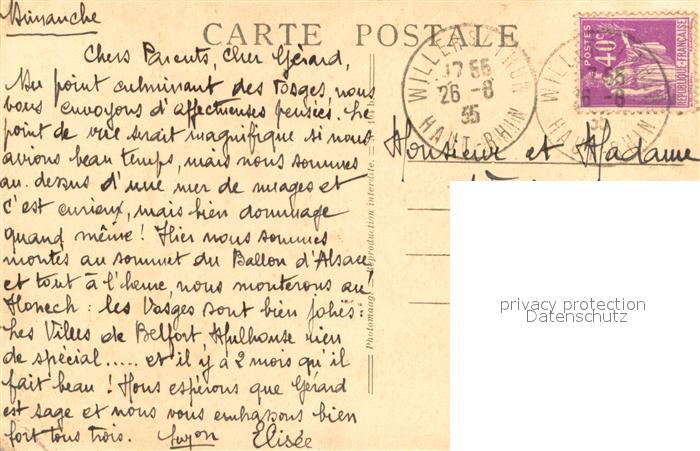 Dimanche
CARTE POSTALE
Chers Parents, Cher Gérard,
Au point culminant des Vosges, nous
vous envoyons d'affectueuses pensées. Le
point de vue serait magnifique si nous
avions beau temps, mais nous sommes
au dessus d'une mer de nuages et
c'est curieux, mais bien dommage
quand même ! Hier nous sommes
montés au sommet du Ballon d'Alsace
et tout à l'heure, nous monterons au
Honech : les Vosges sont bien jolies :
Les Villes de Belfort Mulhouse rien
de spécial..... et il y a 2 mois qu'il
fait beau ! Nous espérons que Gérard
est sage et nous vous embrassons bien
fort tous trois. Elisée
Reproduction interdite.
WILLER S/THUR
17 55
26 - 8
35
HAUT-RHIN
POSTES
40c
REPUBLIQUE FRANÇAISE
Monsieur et Madame
privacy protection
Datenschutz